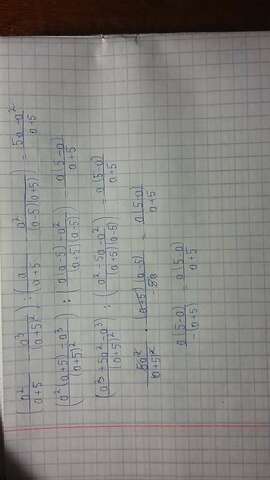 (a²/(a+5) − a³/(a+5)²) : (a/(a+5) − a²/((a-5)(a+5))) = (5a-a²)/(a+5)
((a²(a+5) - a³)/(a+5)²) : ((a(a-5) - a²)/((a+5)(a-5))) = a(5-a)/(a+5)
((a³+5a²-a³)/(a+5)²) : ((a²-5a-a²)/((a+5)(a-5))) = a(5-a)/(a+5)
5a²/(a+5)² · (a+5)(a-5)/(-5a) = a(5-a)/(a+5)
a(5-a)/(a+5) = a(5-a)/(a+5)